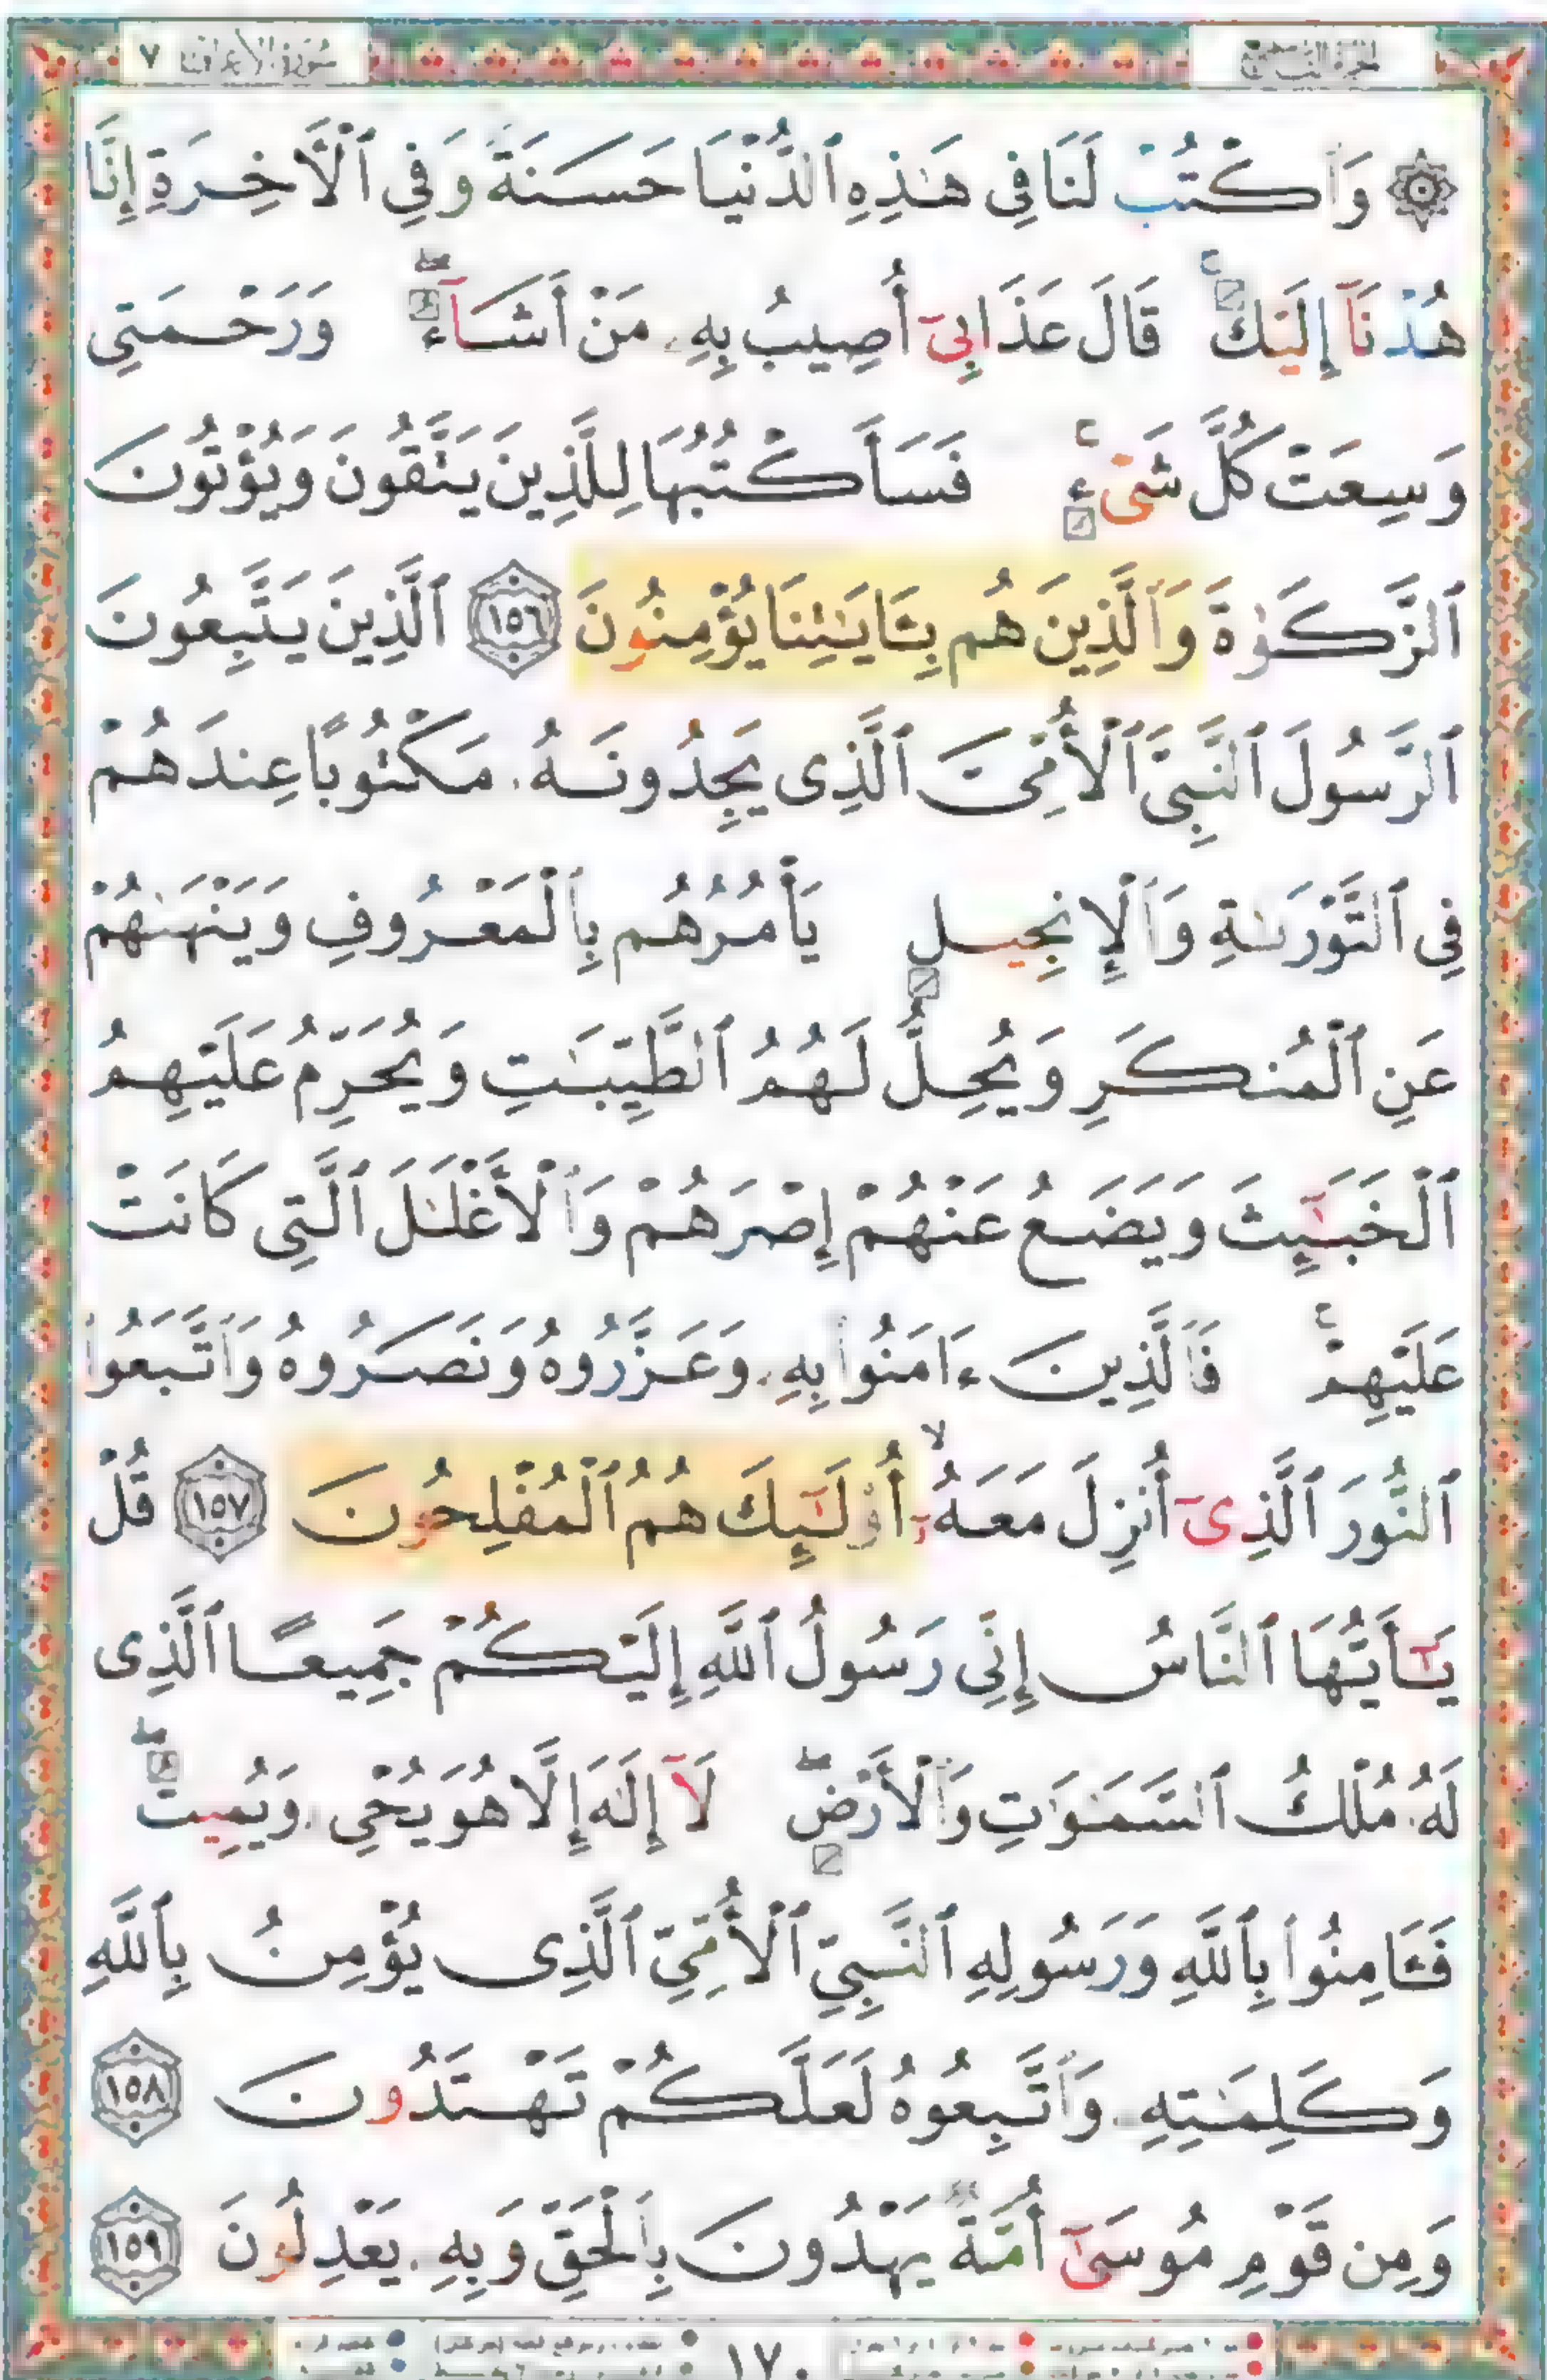 سُورَةُ الأَعْرَافِ ٧
الجزء التاسع
۞ وَٱكْتُبْ لَنَا فِى هَـٰذِهِ ٱلدُّنْيَا حَسَنَةً وَفِى ٱلْـَٔاخِرَةِ إِنَّا
هُدْنَآ إِلَيْكَ ۚ قَالَ عَذَابِىٓ أُصِيبُ بِهِۦ مَنْ أَشَآءُ ۖ وَرَحْمَتِى
وَسِعَتْ كُلَّ شَىْءٍ ۚ فَسَأَكْتُبُهَا لِلَّذِينَ يَتَّقُونَ وَيُؤْتُونَ
ٱلزَّكَوٰةَ وَٱلَّذِينَ هُم بِـَٔايَـٰتِنَا يُؤْمِنُونَ ١٥٦ ٱلَّذِينَ يَتَّبِعُونَ
ٱلرَّسُولَ ٱلنَّبِىَّ ٱلْأُمِّىَّ ٱلَّذِى يَجِدُونَهُۥ مَكْتُوبًا عِندَهُمْ
فِى ٱلتَّوْرَىٰةِ وَٱلْإِنجِيلِ يَأْمُرُهُم بِٱلْمَعْرُوفِ وَيَنْهَىٰهُمْ
عَنِ ٱلْمُنكَرِ وَيُحِلُّ لَهُمُ ٱلطَّيِّبَـٰتِ وَيُحَرِّمُ عَلَيْهِمُ
ٱلْخَبَـٰٓئِثَ وَيَضَعُ عَنْهُمْ إِصْرَهُمْ وَٱلْأَغْلَـٰلَ ٱلَّتِى كَانَتْ
عَلَيْهِمْ ۚ فَٱلَّذِينَ ءَامَنُوا۟ بِهِۦ وَعَزَّرُوهُ وَنَصَرُوهُ وَٱتَّبَعُوا۟
ٱلنُّورَ ٱلَّذِىٓ أُنزِلَ مَعَهُۥٓ ۙ أُو۟لَـٰٓئِكَ هُمُ ٱلْمُفْلِحُونَ ١٥٧ قُلْ
يَـٰٓأَيُّهَا ٱلنَّاسُ إِنِّى رَسُولُ ٱللَّهِ إِلَيْكُمْ جَمِيعًا ٱلَّذِى
لَهُۥ مُلْكُ ٱلسَّمَـٰوَٰتِ وَٱلْأَرْضِ ۖ لَآ إِلَـٰهَ إِلَّا هُوَ يُحْىِۦ وَيُمِيتُ ۖ
فَـَٔامِنُوا۟ بِٱللَّهِ وَرَسُولِهِ ٱلنَّبِىِّ ٱلْأُمِّىِّ ٱلَّذِى يُؤْمِنُ بِٱللَّهِ
وَكَلِمَـٰتِهِۦ وَٱتَّبِعُوهُ لَعَلَّكُمْ تَهْتَدُونَ ١٥٨
وَمِن قَوْمِ مُوسَىٰٓ أُمَّةٌ يَهْدُونَ بِٱلْحَقِّ وَبِهِۦ يَعْدِلُونَ ١٥٩
١٧٠